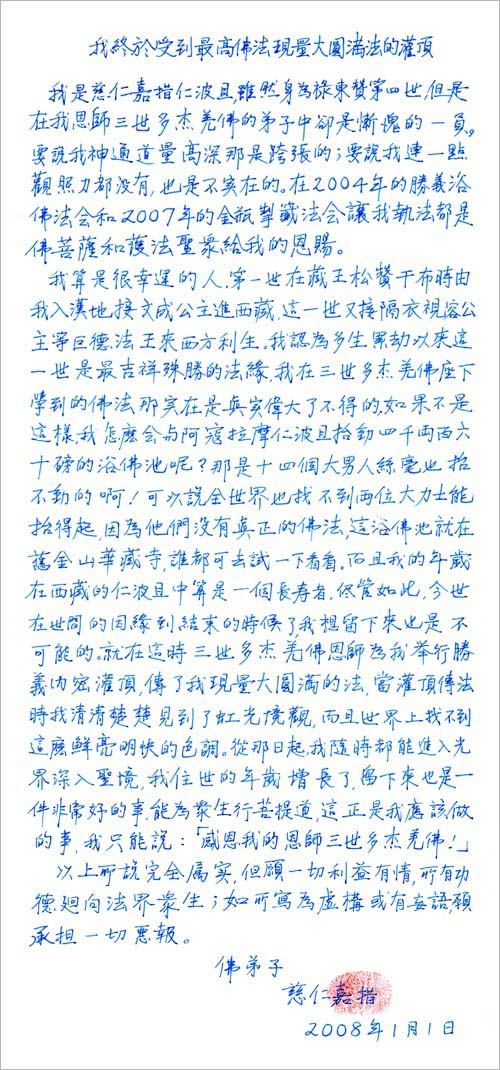 我終於受到最高佛法現量大圓滿法的灌頂
我是慈仁嘉措仁波且,雖然身為祿東贊第四世,但是
在我恩師三世多杰羌佛的弟子中卻是慚愧的一員。
要說我神通道量高深那是誇張的;要說我連一點
觀照力都没有,也是不实在的。在2004年的勝義浴
佛法会和2007年的金瓶掣籤法会讓我執法都是
佛菩薩和護法聖衆給我的恩賜。
我算是很幸運的人,第一世在藏王松贊干布時由
我入漢地接文成公主進西藏,這一世又接隔衣視容公
主寧巨德法王來西方利生。我認為多生累劫以來這
一世是最吉祥殊勝的法緣,我在三世多杰羌佛座下
學到的佛法那实在是真实偉大了不得的,如果不是
這樣,我怎麼会与阿寇拉摩仁波且抬動四千两百六
十磅的浴佛池呢?那是十四個大男人絲毫也抬
不動的啊!可以說全世界也找不到两位大力士能
抬得起,因為他們沒有真正的佛法,這浴佛池就在
舊金山華藏寺,誰都可去試一下看看。而且我的年歲
在西藏的仁波且中算是一個長寿者,侭管如此,今世
在世間的因緣到結束的時候了,我想留下來也是不
可能的。就在這時三世多杰羌佛恩師為我举行勝
義内密灌頂,傳了我現量大圓滿的法,當灌頂傳法
時我清清楚楚見到了虹光境觀,而且世界上找不到
這麼鮮亮明快的色調。從那日起,我隨時都能進入光
界深入聖境,我住世的年歲增長了,留下來也是一
件非常好的事,能為衆生行菩提道,這正是我應該做
的事,我只能說:「感恩我的恩師三世多杰羌佛!」
以上所說完全属实,但願一切利益有情,所有功
德迴向法界衆生;如所寫為虛構或有妄語,願
承担一切惡報。
佛弟子
慈仁嘉措
2008年1月1日